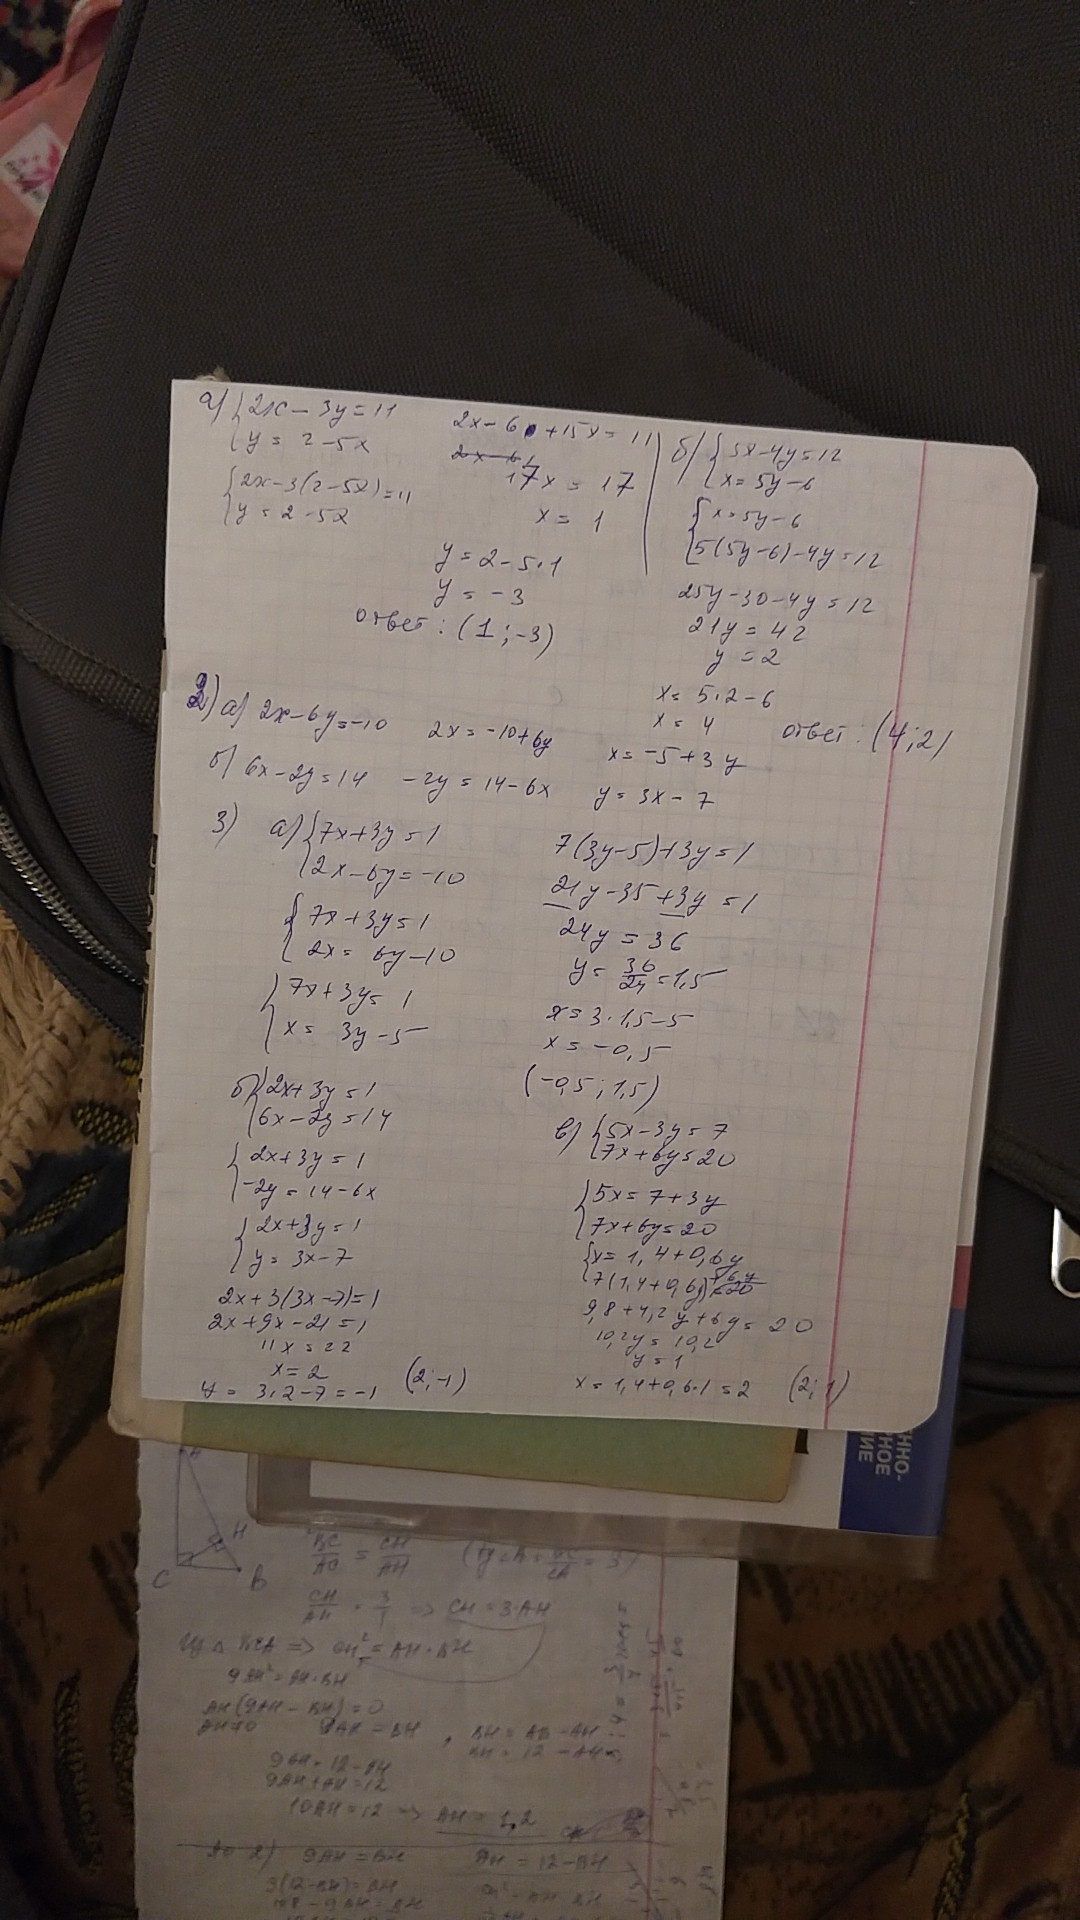 а) { 2x - 3y = 11
{ y = 2 - 5x
{ 2x - 3(2 - 5x) = 11
{ y = 2 - 5x
2x - 6 + 15x = 11
17x = 17
x = 1
y = 2 - 5·1
y = -3
ответ: (1; -3)
б) { 5x - 4y = 12
{ x = 5y - 6
{ x = 5y - 6
{ 5(5y - 6) - 4y = 12
25y - 30 - 4y = 12
21y = 42
y = 2
x = 5·2 - 6
x = 4
ответ: (4; 2)
2) а) 2x - 6y = -10 2x = -10 + 6y x = -5 + 3y
б) 6x - 2y = 14 -2y = 14 - 6x y = 3x - 7
3) а) { 7x + 3y = 1
{ 2x - 6y = -10
{ 7x + 3y = 1
{ 2x = 6y - 10
{ 7x + 3y = 1
{ x = 3y - 5
7(3y - 5) + 3y = 1
21y - 35 + 3y = 1
24y = 36
y = 36/24 = 1,5
x = 3·1,5 - 5
x = -0,5
(-0,5; 1,5)
б) { 2x + 3y = 1
{ 6x - 2y = 14
{ 2x + 3y = 1
{ -2y = 14 - 6x
{ 2x + 3y = 1
{ y = 3x - 7
2x + 3(3x - 7) = 1
2x + 9x - 21 = 1
11x = 22
x = 2
y = 3·2 - 7 = -1 (2; -1)
в) { 5x - 3y = 7
{ 7x + 6y = 20
{ 5x = 7 + 3y
{ 7x + 6y = 20
{ x = 1,4 + 0,6y
7(1,4 + 0,6y) + 6y = 20
9,8 + 4,2y + 6y = 20
10,2y = 10,2
y = 1
x = 1,4 + 0,6·1 = 2 (2; 1)
ННО-
НОЕ
НИЕ
A
H
C B
BC/AC = CH/AH
CH/AH = 3/1 => CH = 3·AH
CH² = AH·BH
9AH² = AH·BH
AH(9AH - BH) = 0
9AH = BH, BH = AB - AH
BH = 12 - AH
9AH = 12 - AH
9AH + AH = 12
10AH = 12 => AH = 1,2
2) 9AH = BH AH = 12 - BH